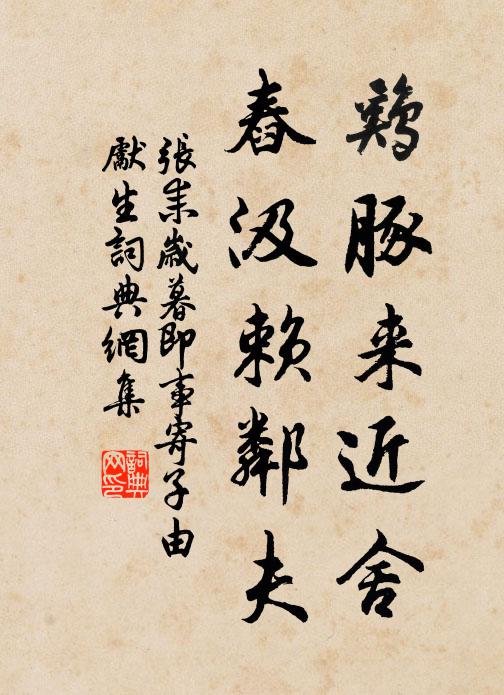 鷄豚来近舍
舂汲賴鄰夫
張耒歲暮即事寄子由
獻生詞典網集
詞典網印